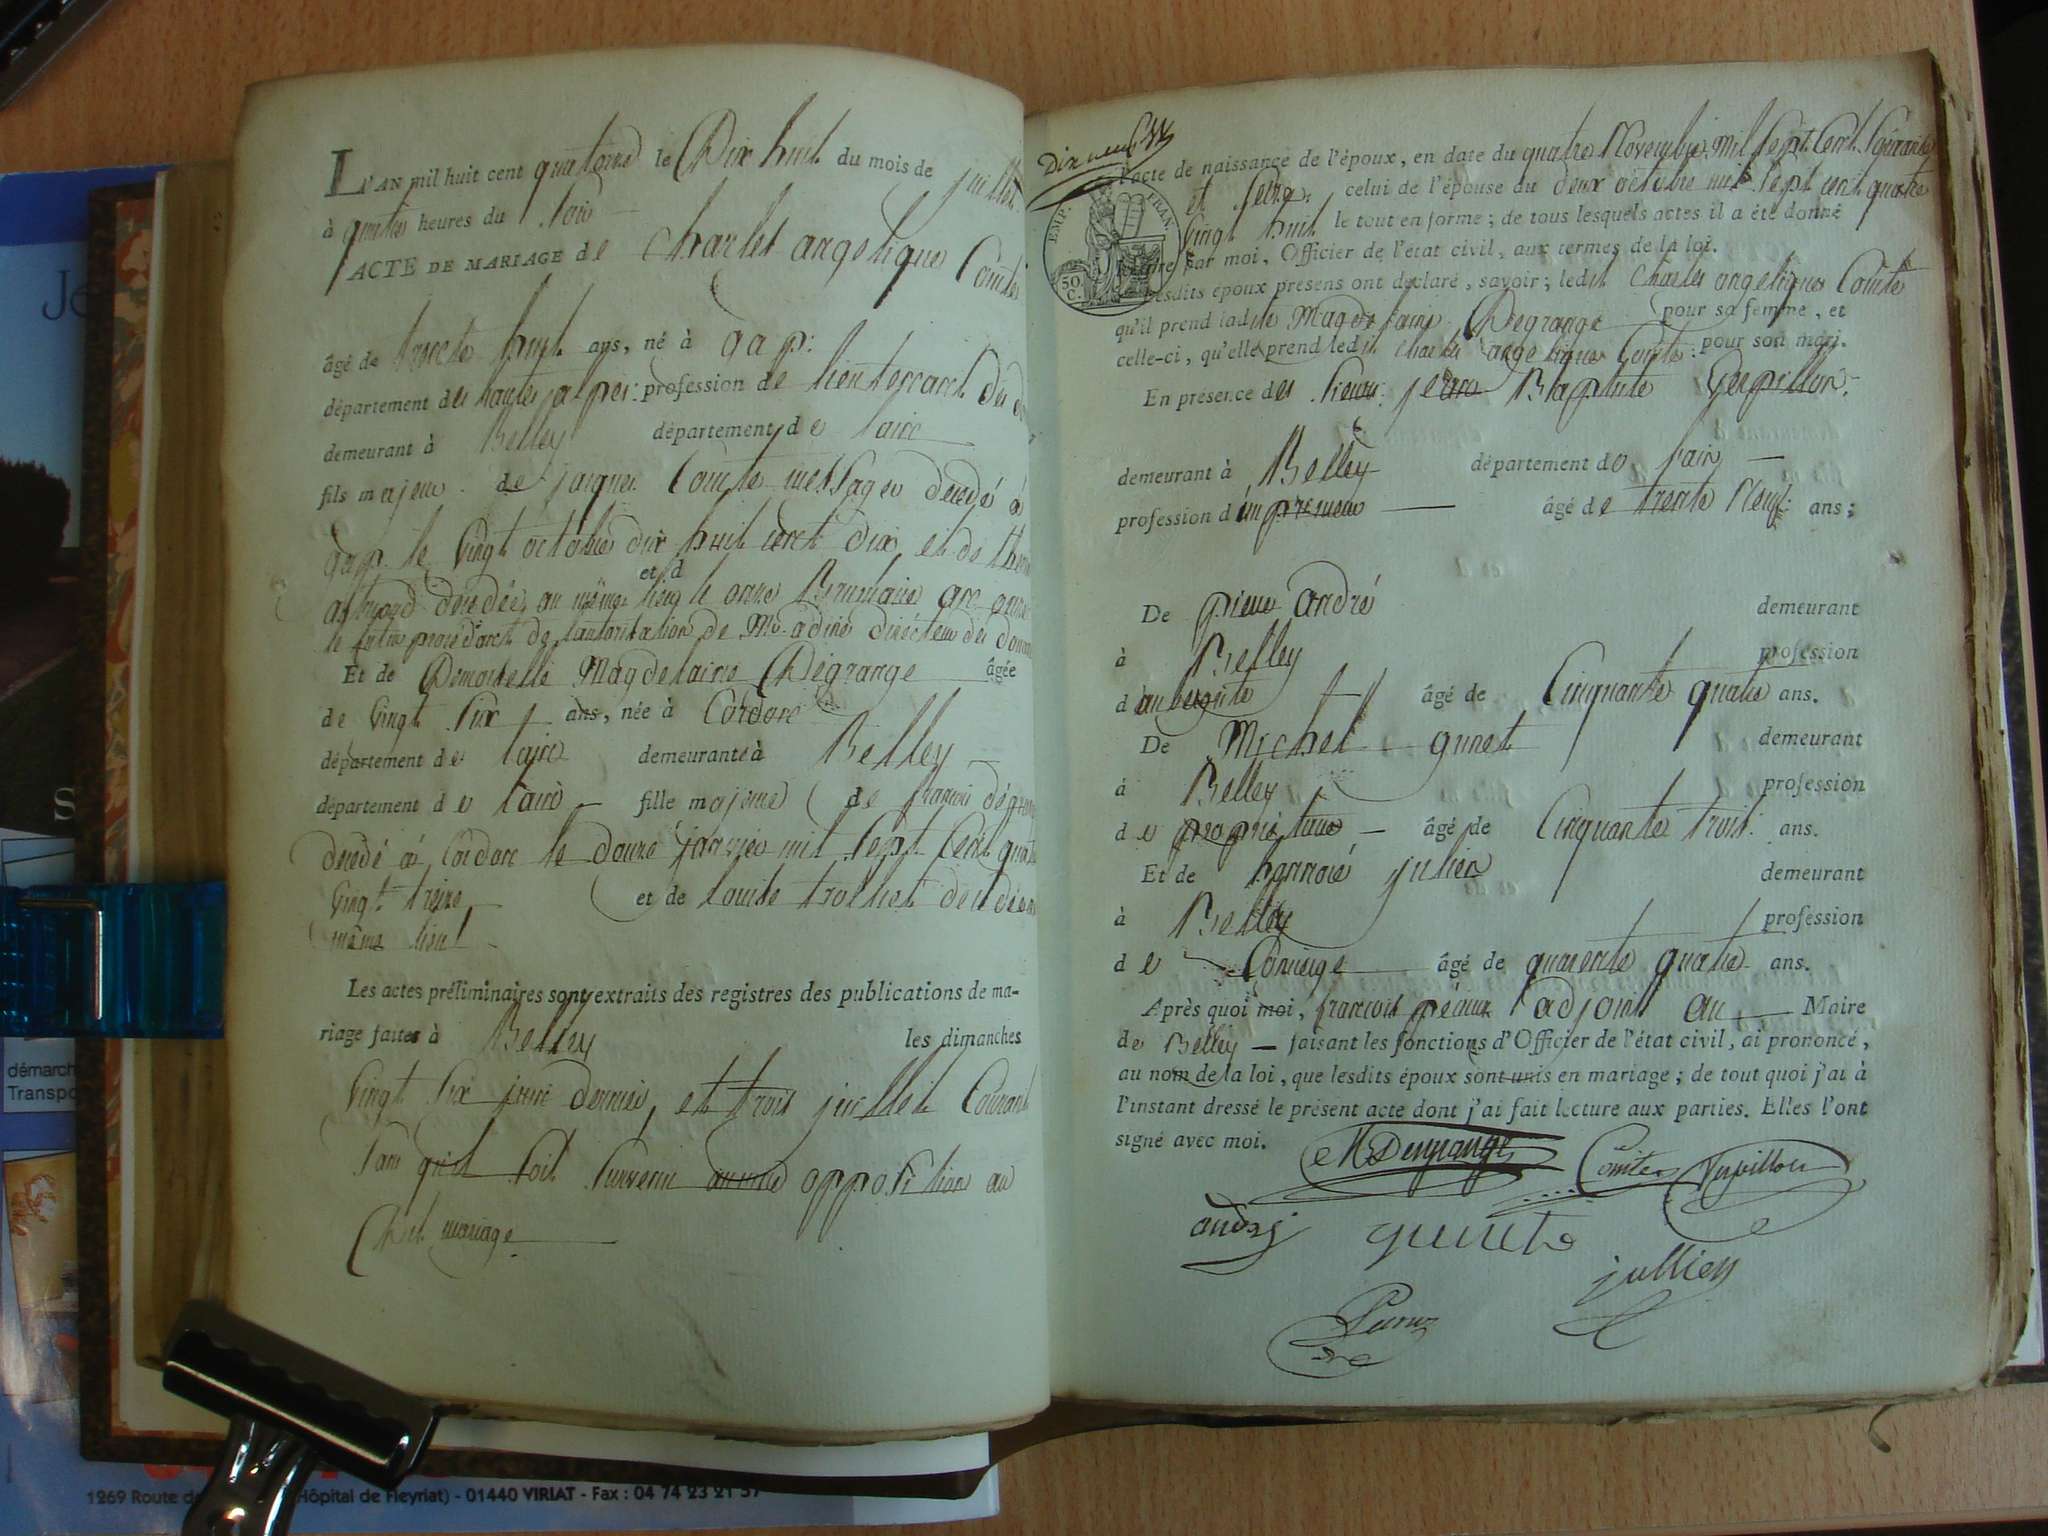 L'AN mil huit cent quatorze le Dix huit du mois de juillet
à quatre heures du soir
ACTE DE MARIAGE de Charles angelique Comte
âgé de trente huit ans, né à gap.
département des hautes alpes. profession de lieutenant des
demeurant à Belley département de lain
fils majeur de jacques Comte messager décédé à
gap le vingt octobre dix huit cent dix et de
décédée au même lieu le onze Brumaire an onze
et d
le futur procédant de l'autorisation de Mr. directeur des
Et de Demoiselle Magdelaine Dégrange âgée
de vingt six ans, née à Cordon
département de lain demeurante à Belley
département de lain fille majeure de françois
décédé à Cordon le douze janvier mil sept cent quatre
vingt treize et de louise trolliet décédée au
même lieu
Les actes préliminaires sont extraits des registres des publications de ma-
riage faites à Belley les dimanches
vingt six juin dernier, et trois juillet Courant
sans qu'il soit survenu aucune opposition au
dit mariage
Dix neuf
l'acte de naissance de l'époux, en date du quatre Novembre mil sept cent soixante
et seize celui de l'épouse du deux octobre mil sept cent quatre
vingt huit le tout en forme; de tous lesquels actes il a été donné
lecture par moi, Officier de l'état civil, aux termes de la loi.
EMP. FRAN.
50 C.
Lesdits époux présens ont déclaré, savoir; ledit Charles angelique Comte
qu'il prend ladite Magdelaine Degrange pour sa femme, et
celle-ci, qu'elle prend ledit Charles angelique Comte pour son mari.
En présence des sieurs jean Baptiste Gerpillon
demeurant à Belley département de lain
profession d'imprimeur âgé de trente Neuf ans;
De pierre andré demeurant
à Belley profession
d aubergiste âgé de Cinquante quatre ans.
De Michel gunet demeurant
à Belley profession
de propriétaire âgé de Cinquante trois ans.
Et de honnoré julien demeurant
à Belley profession
de Concierge âgé de quarente quatre ans.
Après quoi moi, françois péaux adjoint au Maire
de Belley faisant les fonctions d'Officier de l'état civil, ai prononcé,
au nom de la loi, que lesdits époux sont unis en mariage; de tout quoi j'ai à
l'instant dressé le présent acte dont j'ai fait lecture aux parties. Elles l'ont
signé avec moi. M Desgrange Comte
andré
jullien
démarch
Transpo
1269 Route de Hôpital de Fleyriat) - 01440 VIRIAT - Fax : 04 74 23 21 57